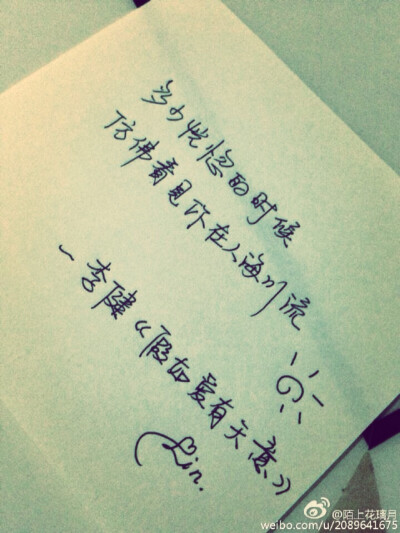 多少恍惚的时候
仿佛看见你在人海川流
~李健《假如爱有天意》
Lin.
@陌上花璃月
weibo.com/u/2089641675